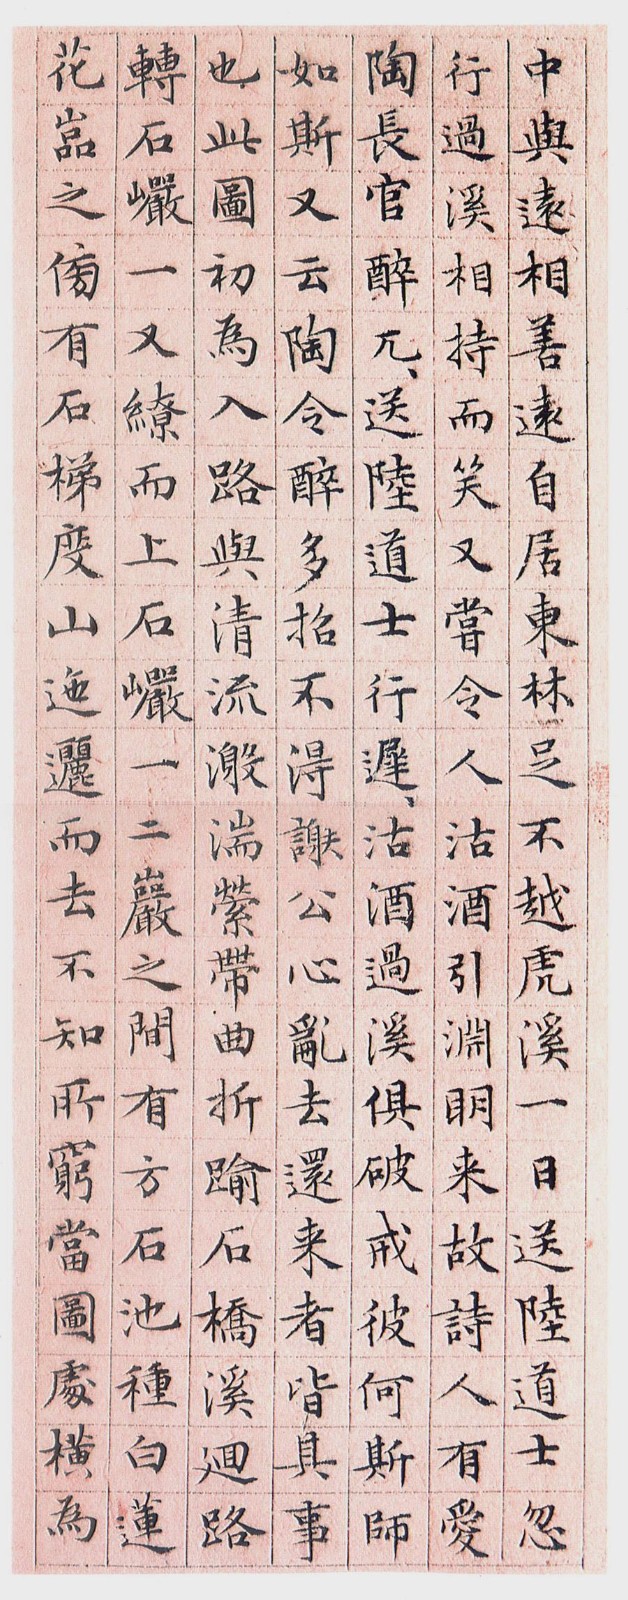 中與遠相善遠自居東林足不越虎溪一日送陸道士忽
行過溪相持而笑又嘗令人沽酒引淵明来故詩人有愛
陶長官醉兀、送陸道士行遲、沽酒過溪俱破戒彼何斯師
如斯又云陶令醉多招不得謝公心亂去還来者皆其事
也此圖初為入路與清流激湍縈帶曲折踰石橋溪迴路
轉石巗一又繚而上石巗一二巖之間有方石池種白蓮
花嵓之傍有石梯度山迤邐而去不知所窮當圖處橫為